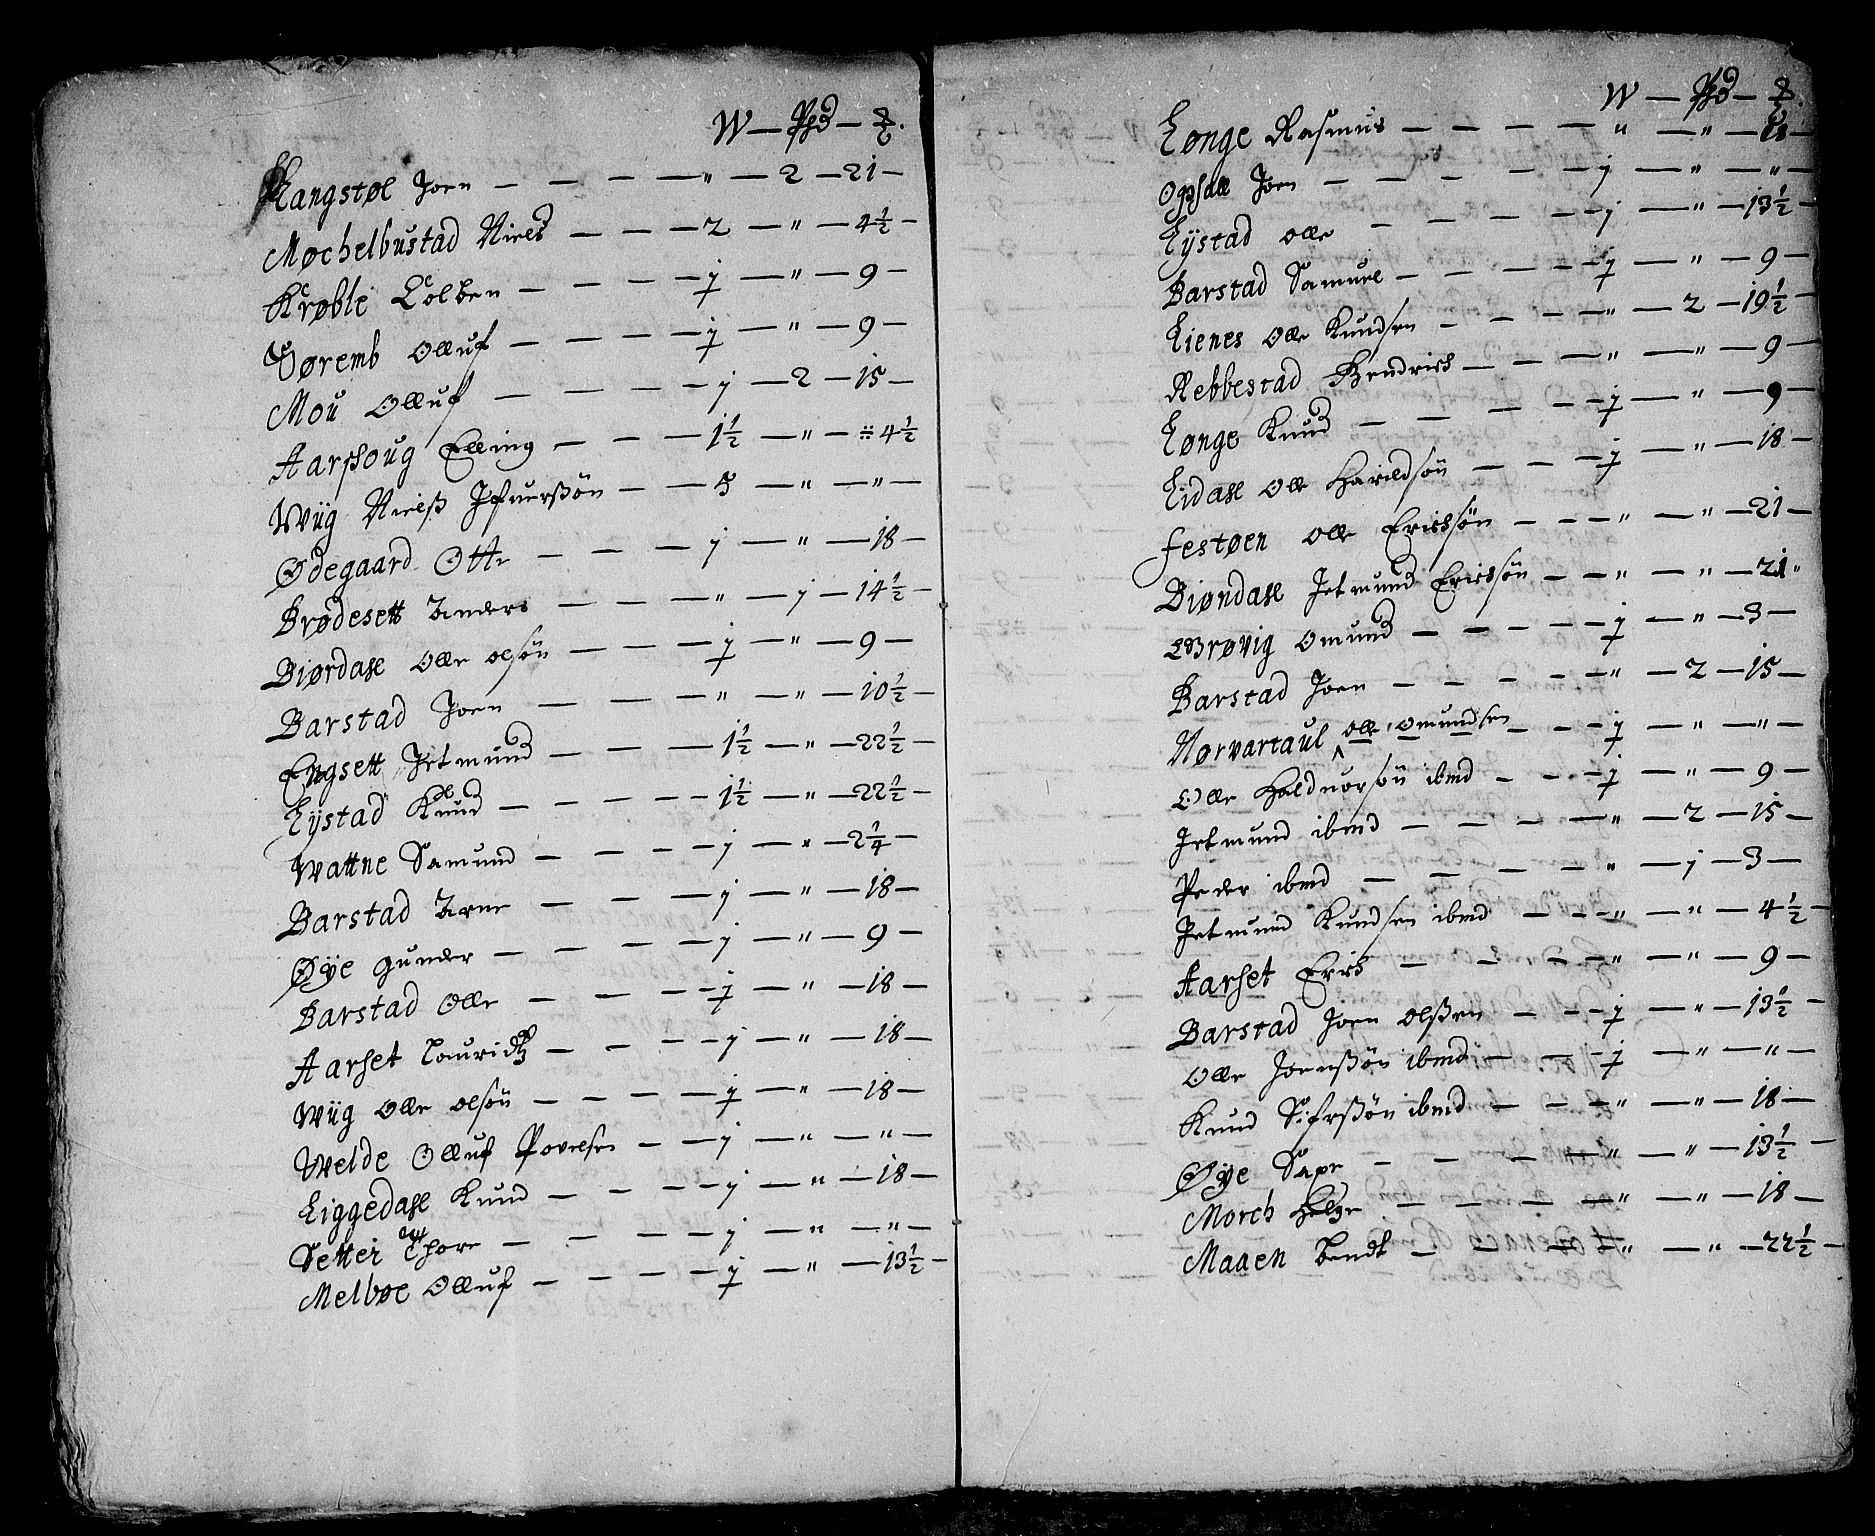 W — Pfd — ℔.
Kangstøl Joen — — — — " — 2 — 21 —
Møchelbustad Niels — — — 2 — " — 4½ —
Krøble Colben — — — — j — " — 9 —
Søremb Olluf — — — — j — " — 9 —
Mou Olluf — — — — j — 2 — 15 —
Aarshoug Elling — — — 1½ — " — 4½
Wiig Nielß Jfuerßøn — — 5 — " — " —
Ødegaard Otte — — — j — " — 18 —
Brødesett Anders — — — " — j — 14½ —
Biørdahl Olle olsøn — — — j — " — 9 —
Barstad Joen — — — " — " — 10½ —
Engsett Jetmund — — — 1½ — " — 22½ —
Eystad Knud — — — — 1½ — " — 22½ —
Wattne Samund — — — — j — " — 2¼ —
Barstad Arne — — — — j — " — 18 —
Øye Gunder — — — — j — " — 9 —
Barstad Olle — — — — j — " — 18 —
Aarset Lauridtz — — — — j — " — 18 —
Wiig Olle olsøn — — — — j — " — 18 —
Welde Olluf Povelsen — — j — " — " —
Liggedahl Knud — — — — j — " — 18 —
Setter Thore — — — — j — " — " —
Melbøe Olluf — — — — j — " — 13½ —
W — Pfd — ℔.
Longe Rasmus — — — — " — " — 18 —
Opsall Joen — — — — — j — " — " —
Eystad olle — — — — j — " — 13½ —
Barstad Samuel — — — — j — " — 9 —
Lienes Olle Knudsen — — — — " — 2 — 19½ —
Rebbestad Hendrich — — — " — " — 9 —
Longe Knud — — — — j — " — 9 —
Eidahl Olle Harildsøn — — — j — " — 18 —
Festøen Olle Erichsøn — — — " — " — 21 —
Biøndahl Jetmund Erichsøn — — " — " — 21 "
Brøvig Omund — — — — j — " — 3 —
Barstad Joen — — — — — " — 2 — 15 —
Norvartaul olle omundsen — — j — " — " —
Olle Halduorsøn ibmd — — — j — " — 9 —
Jetmund ibmd — — — — " — 2 — 15 —
Peder ibmd — — — — " — j — 3 —
Jetmund Knudsen ibmd — — — " — " — 4½ —
Aarset Erich — — — — " — " — 9 —
Barstad Joen olßen — — — j — " — 13½ —
Olle Joenßøn ibmd — — — j — " — " —
Knud Sifrßøn ibmd — — — " — " — 18 —
Øye Saxe — — — — " — " — 13½ —
Morch Helge — — — — " — " — 18 —
Maaen Bendt — — — — " — " — 22½ —